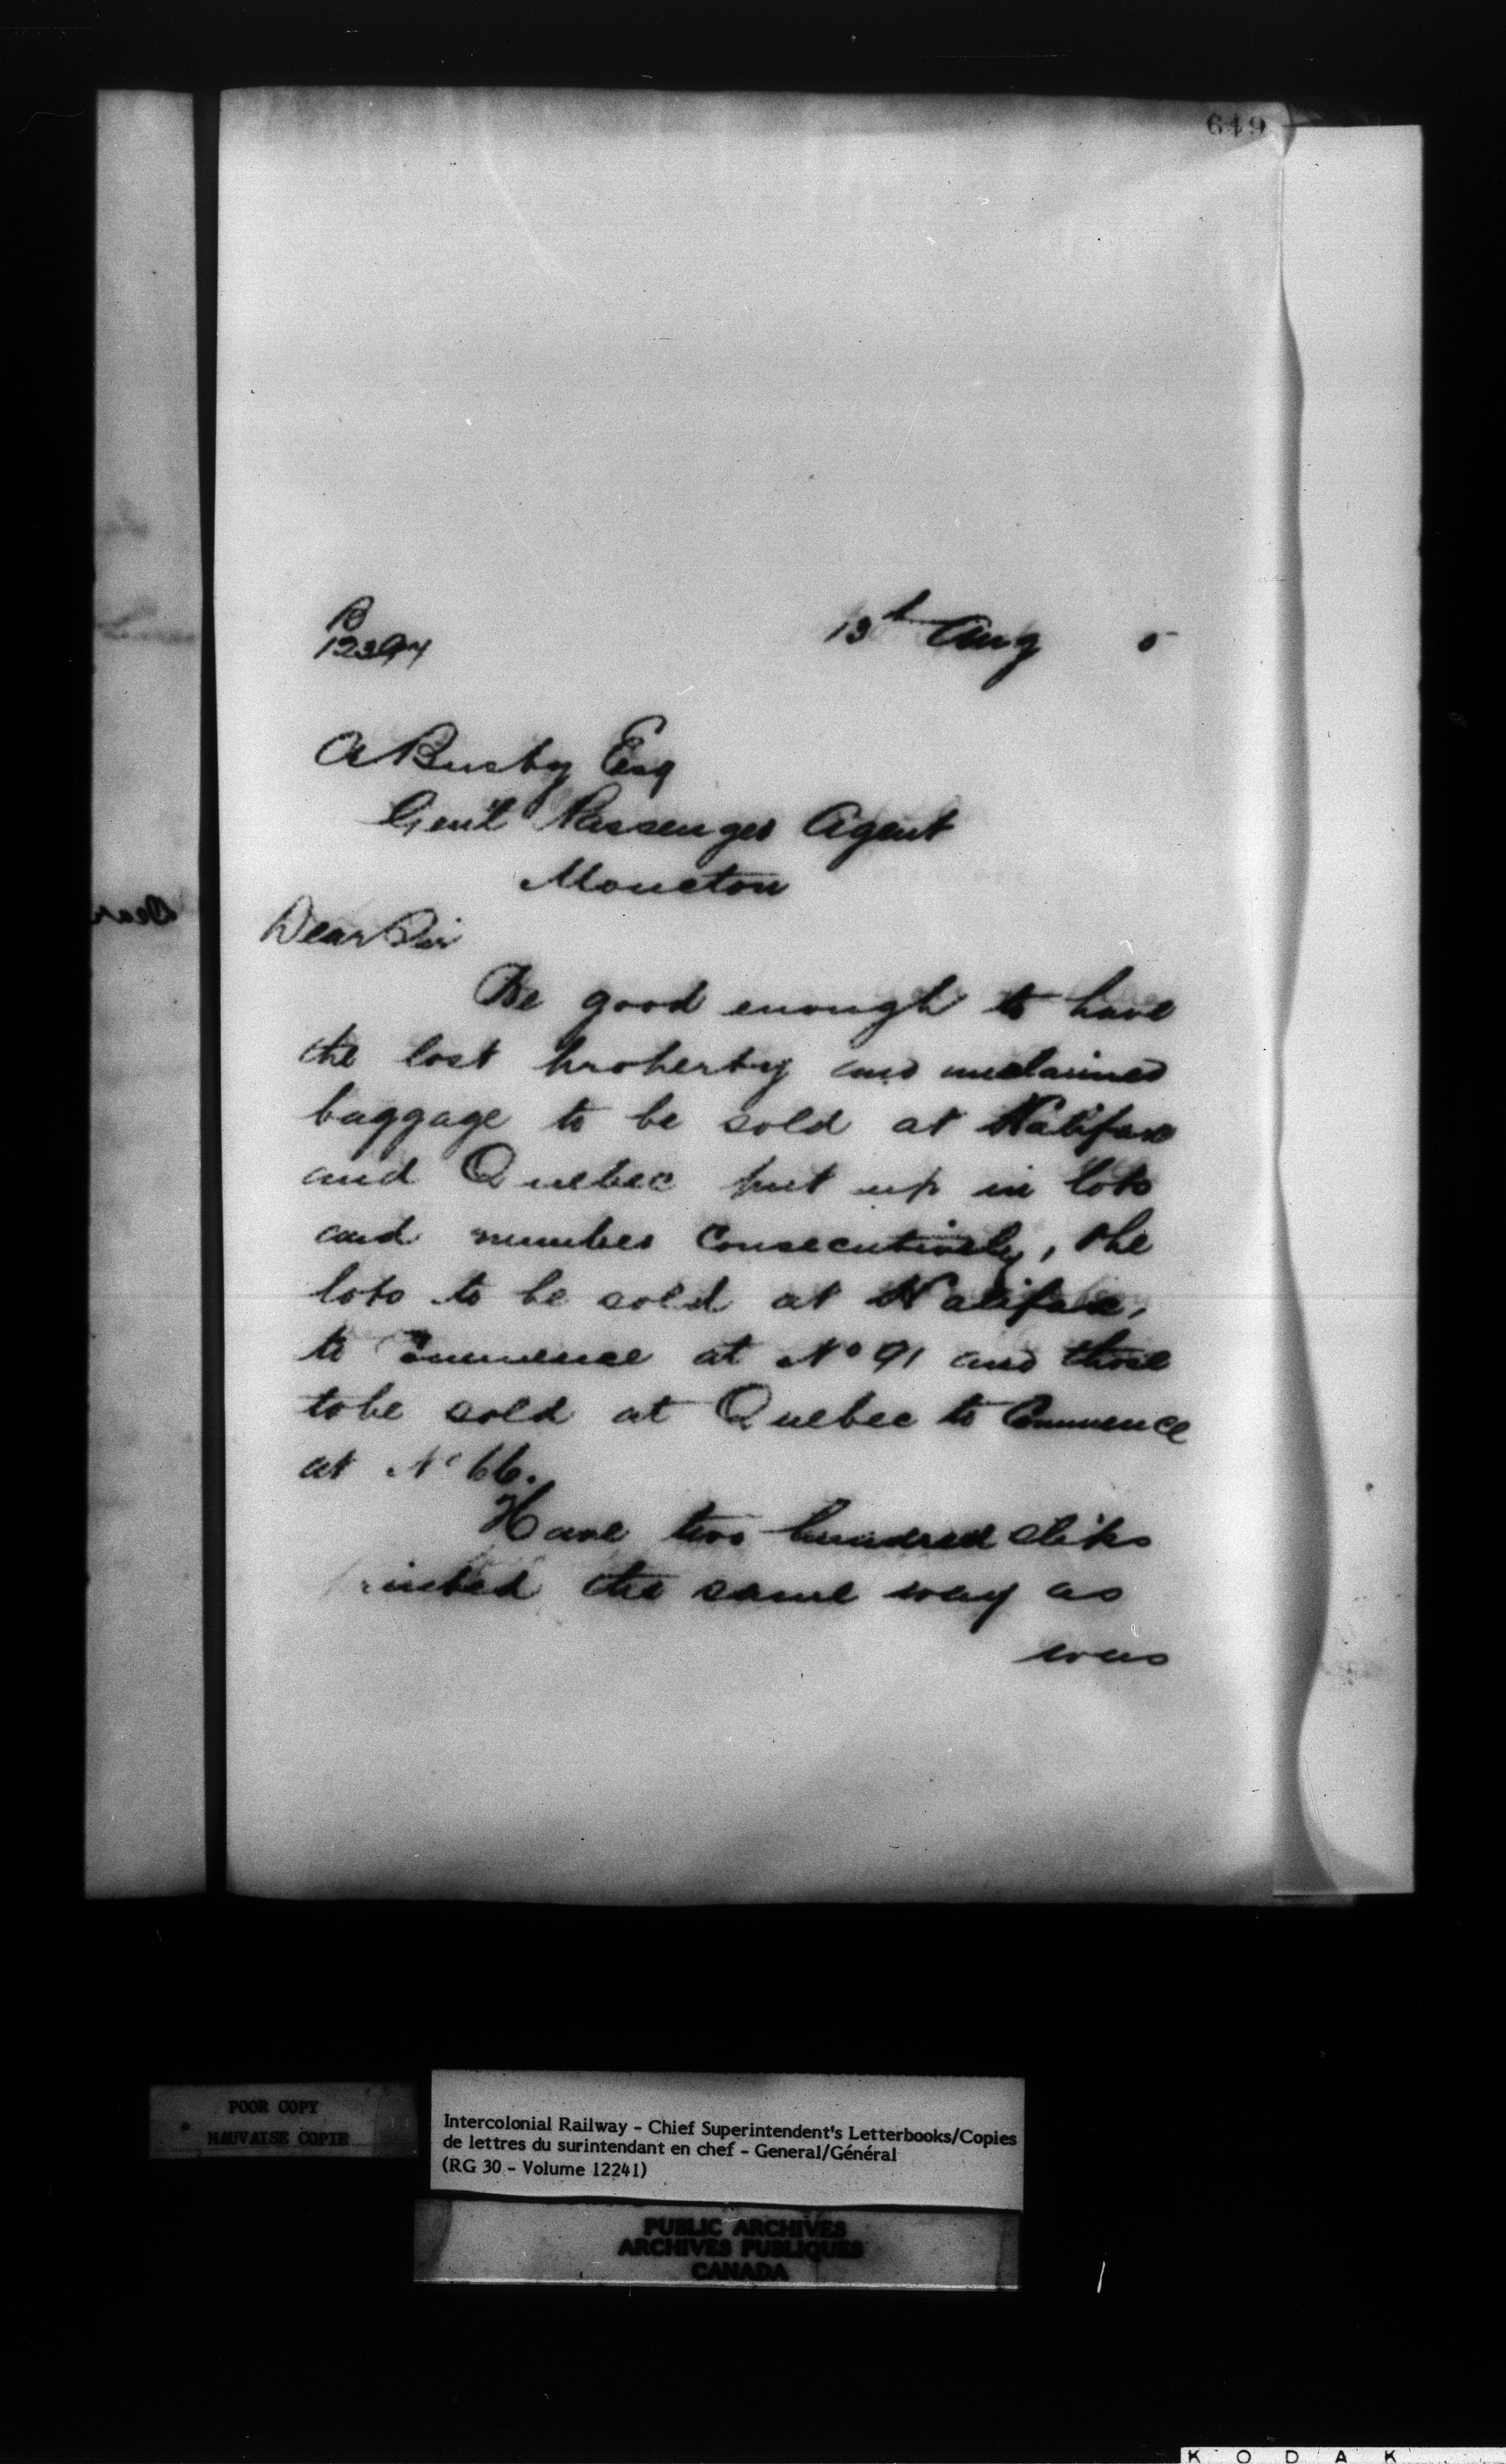 649
B
12394
13th Aug 5
A Busby Esq
Gen'l Passenger Agent
Moncton
Dear Sir
Be good enough to have
the lost property and unclaimed
baggage to be sold at Halifax
and Quebec put up in lots
and number consecutively, the
lots to be sold at Halifax,
to Commence at No 91 and those
to be sold at Quebec to Commence
at No 66.
Have two hundred slips
printed the same way as
was
Dear
POOR COPY
MAUVAISE COPIE
Intercolonial Railway - Chief Superintendent's Letterbooks/Copies
de lettres du surintendant en chef - General/Général
(RG 30 - Volume 12241)
PUBLIC ARCHIVES
ARCHIVES PUBLIQUES
CANADA
KODAK